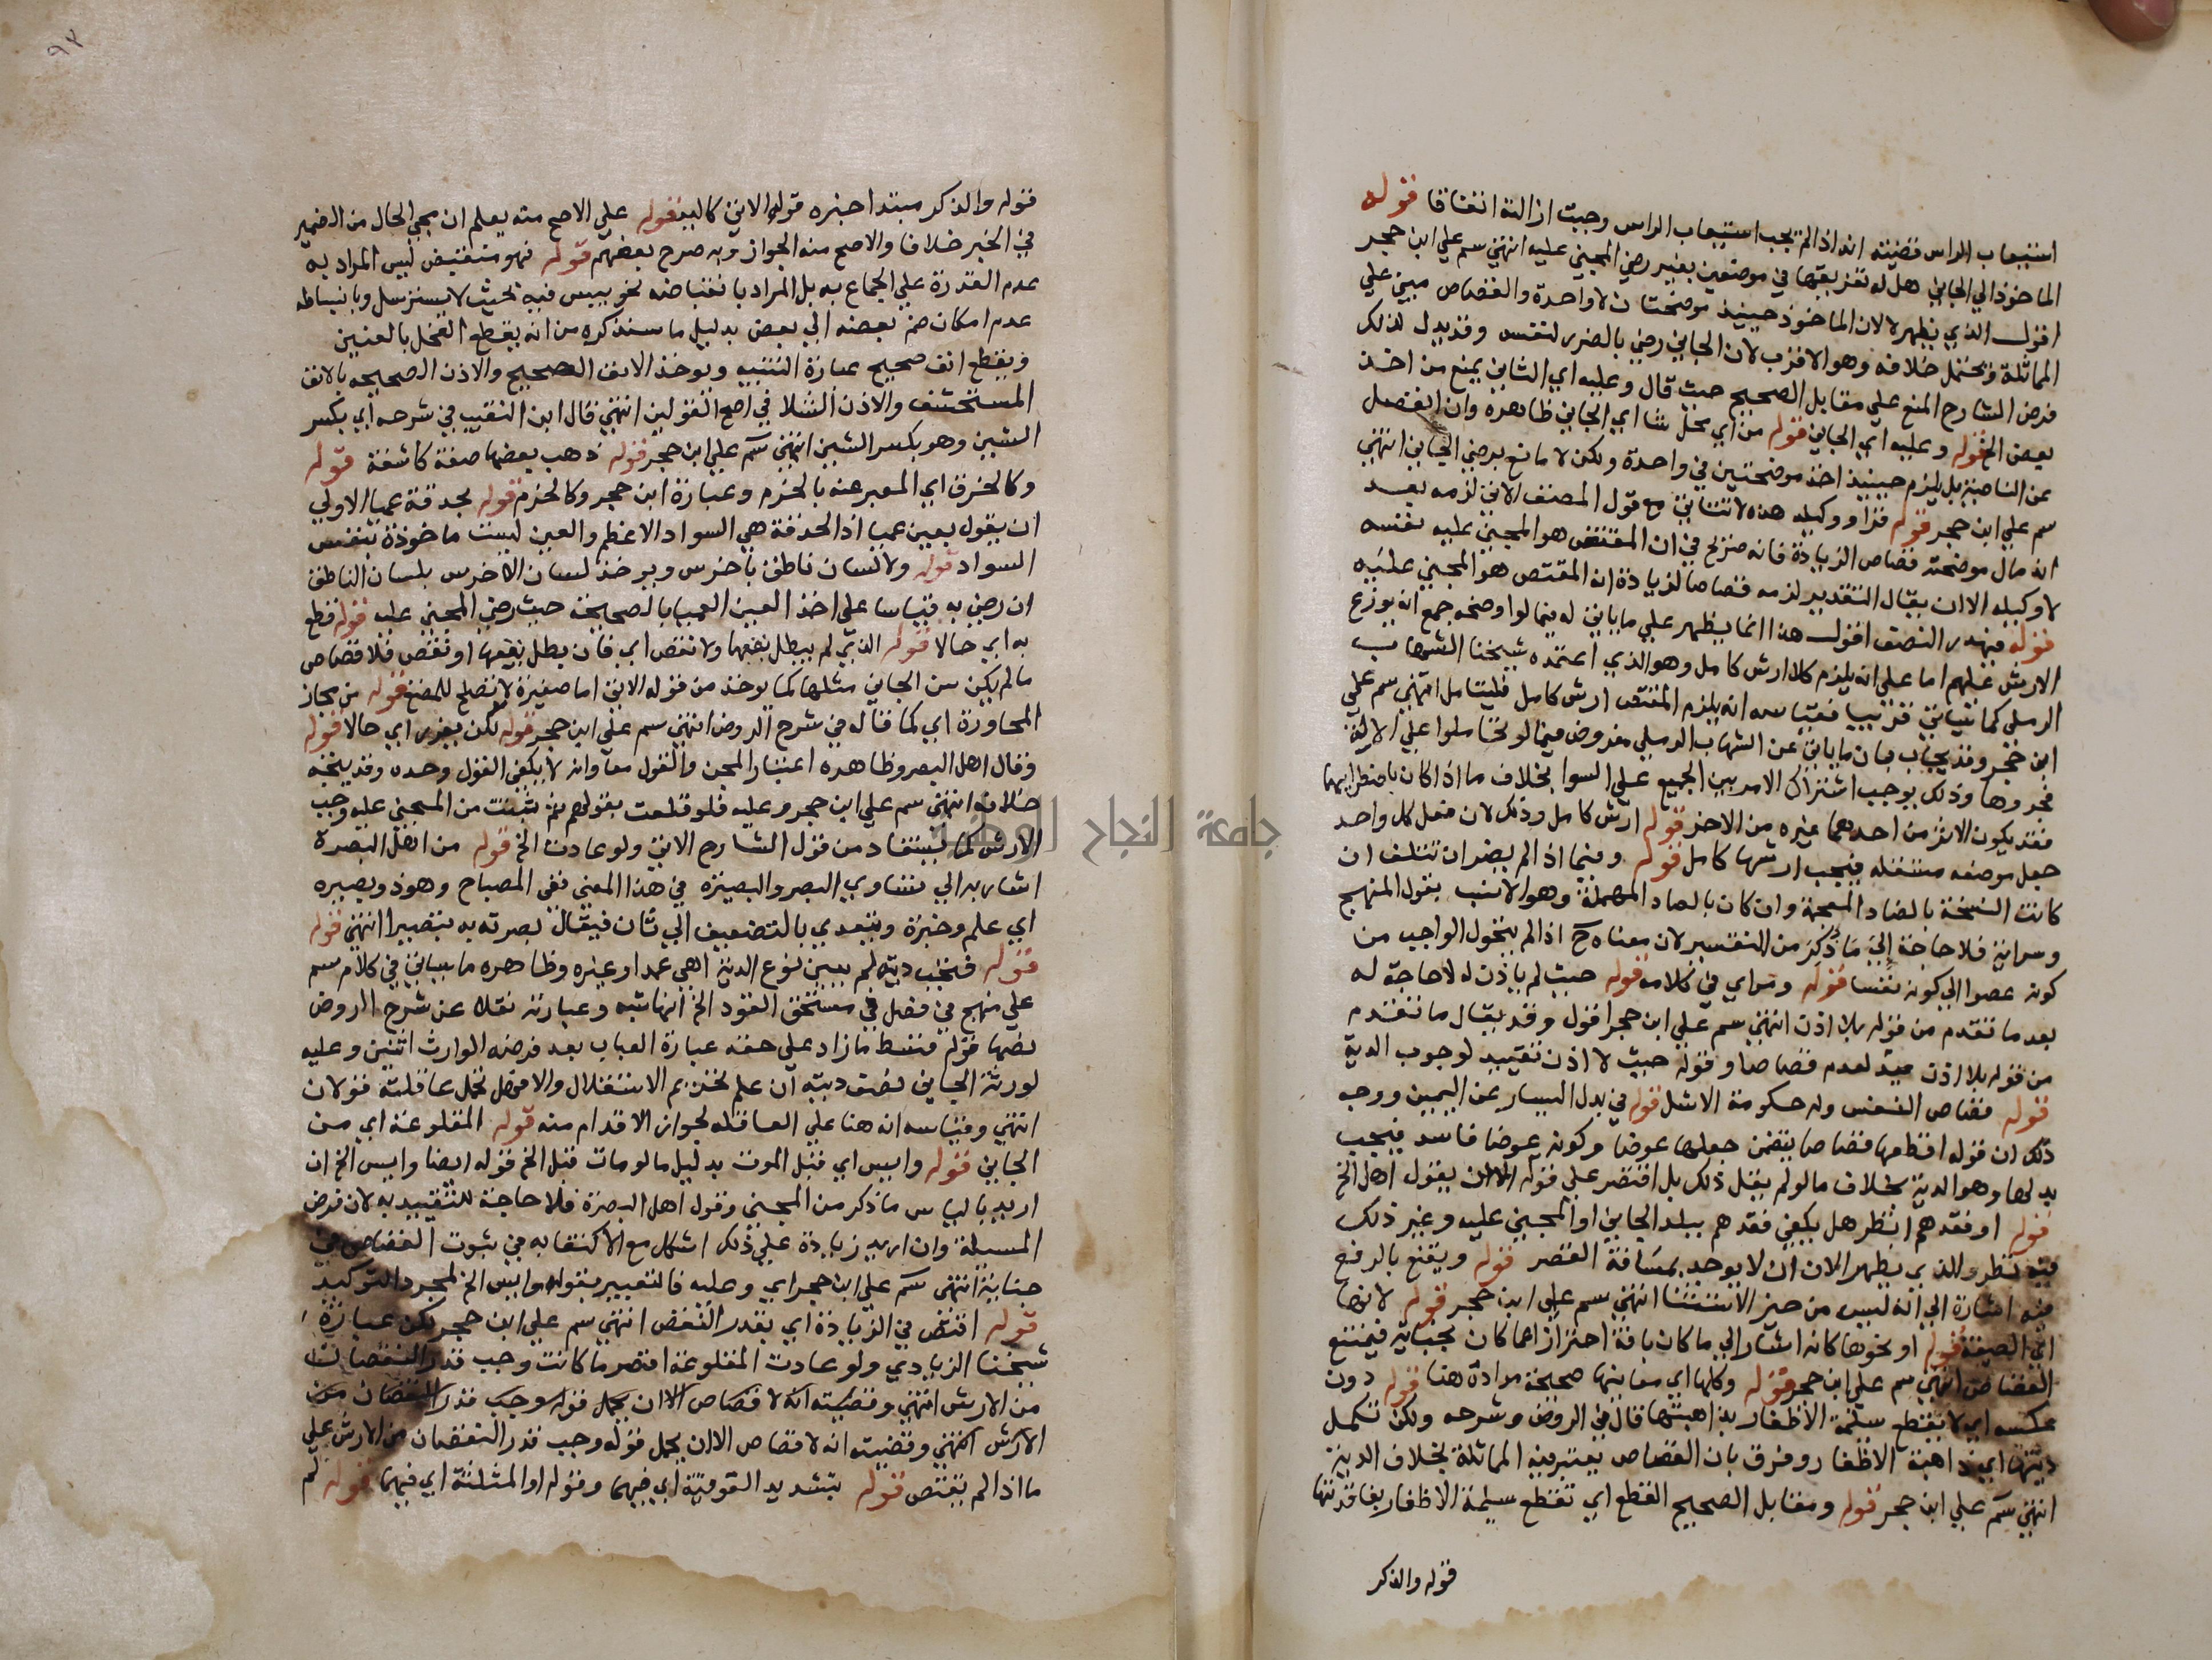 استيعاب الراس قضيته انه اذا لم يجب استيعاب الراس وجبت ازالته اتفاقا قوله
الماخوذ الي الجاني هل له تفريقها في موضعين بغير رضي المجني عليه انتهي سم علي ابن حجر
اقول الذي يظهر لا لان الماخوذ حينيذ موضحتان لا واحدة والقصاص مبني علي
المماثلة ويحتمل خلافه وهو الاقرب لان الجاني رضي بالضرر لنفسه وقد يدل لذلك
فرض الشارح المنع علي مقابل الصحيح حيث قال وعليه اي الثاني يمنع من اخذ
بعض الخ قوله وعليه اي الجاني قوله من اي محل شا اي الجاني ظاهره وان انفصل
عن الناصية بل يلزم حينيذ اخذ موضحتين في واحدة ولكن لا مانع برضي الجاني انتهي
سم علي ابن حجر قوله فزاد وكيله هذه لا تتنافي مع قول المصنف الاتي لزمه بعد
اندمال موضحته قصاص الزيادة فانه صريح في ان المقتص هو المجني عليه نفسه
لا وكيله الا ان يقال التقدير لزمه قصاص الزيادة ان المقتص هو المجني عليه
قوله فيهدر النصف اقول هذا انما يظهر علي ما ياتي له فيما لو اوضحه جمع انه يوزع
الارش عليهم اما علي انه يلزم كلا ارش كامل وهو الذي اعتمده شيخنا الشهاب
الرملي كما سياتي قريبا فقياسه انه يلزم المقتص ارش كامل فليتامل انتهي سم علي
ابن حجر وقد يجاب بان ما ياتي عن الشهاب الرملي مفروض فيما لو تحاملوا علي الالة
فجروها وذلك يوجب اشتراك الامر بين الجميع علي السوا بخلاف ما اذا كان باضطرابهما
فقد يكون الاثر من احدهما غيره من الاخر قوله ارش كامل وذلك لان فعل كل واحد
جعل موضحه مستقله فيجب ارشها كامل قوله وفيما اذا لم يضر ان تتلف ان
كانت النسخة بالضاد المعجمة وان كان بالصاد المهملة وهو الانسب بقول المنهج
وسراية فلا حاجة الي ما ذكر من التفسير لان معناه ح اذا لم يتحول الواجب من
كونه عضوا الي كونه نفسا قوله وسراي في كلامه قوله حيث لم ياذن له لا حاجة له
بعد ما تقدم من قوله بلا اذن انتهي سم علي ابن حجر اقول وقد يقال ما تقدم
من قوله بلا اذن قيد لعدم قصاصا وقوله حيث لا اذن تقييد لوجوب الدية
قوله قصاص النفس وله حكومة الاشل قوله في بدل اليسار عن اليمين ووجه
ذلك ان قوله اقطعها قصاصا يتضمن جعلها عوضا وكونه عوضا فاسد فيجب
بدلها وهو الدية بخلاف ما لو لم يقل ذلك بل اقتصر علي قوله الا ان يقول اهل الخ
قوله او فقدهم انظر هل يكفي فقدهم ببلد الجاني او المجني عليه وغير ذلك
فيه نظر والذي يظهر الان ان لا يوجد بمسافة القصر قوله ويقنع بالرفع
فيه اشارة الي انه ليس من حيز الاستثنا انتهي سم علي ابن حجر قوله لانها
اي الصيغة قوله او نحوها كانه اشار الي ما كان بافة احترازا عما كان بجناية فيمتنع
القصاص انتهي سم علي ابن حجر قوله وكلها اي معانيها صحيحة مرادة هنا قوله دون
عكسه اي لا يقطع سليمة الاظفار بذاهبتها قال في الروض وشرحه ولكن تكمل
ديتها اي ذاهبة الاظفار وفرق بان القصاص يعتبر فيه المماثلة بخلاف الدية
انتهي سم علي ابن حجر قوله ومقابل الصحيح القطع اي تقطع سليمة الاظفار بفاقدتها
قوله والذكر
قوله والذكر مبتدا خبره قوله الاتي كاليد قوله علي الاصح منه يعلم ان مجي الحال من الضمير
في الخبر خلافا والاصح منه الجواز وبه صرح بعضهم قوله فهو منقبض ليس المراد به
عدم القدرة علي الجماع به بل المراد بانقباضه نحو يبس فيه بحيث لا يسترسل وبانبساطه
عدم امكان ضم بعضه الي بعض بدليل ما سنذكره من انه يقطع الفحل بالعنين
ويقطع انف صحيح عبارة التنبيه ويوخذ الانف الصحيح والاذن الصحيحه بالانف
المستحشف والاذن الشلا في اصح القولين انتهي قال ابن النقيب في شرحه اي بكسر
الشين وهو بكسر الشين انتهي سم علي ابن حجر قوله ذهب بعضها صفة كاشفة قوله
وكالخرق اي المعبر عنه بالخرم وعبارة ابن حجر وكالخرم قوله بحدقة عميا الاولي
ان يقول بعين عميا اذ الحدقة هي السواد الاعظم والعين ليست ماخوذة بنفس
السواد قوله ولا لسان ناطق باخرس ويوخذ لسان الاخرس بلسان الناطق
ان رضي به قياسا علي اخذ العين العميا بالصحيحة حيث رضي المجني عليه قوله قطع
به اي حالا قوله الذي لم يبطل نفعها ولا نقص اي فان بطل نفعها او نقص فلا قصاص
ما لم يكن سن الجاني مثلها كما يوخذ من قوله الاتي اما صغيرة لا تصلح للمضغ قوله من مجاز
المجاورة اي كما قاله في شرح الروض انتهي سم علي ابن حجر قوله لكن يعزر اي حالا قوله
وقال اهل البصر وظاهره اعتبار المجي والقول معا وانه لا يكفي القول وحده وقد يتجه
خلافه انتهي سم علي ابن حجر وعليه فلو قلعت بقولهم ثم نبتت من المجني عليه وجب
الارش كما يستفاد من قول الشارح الاتي ولو عادت الخ قوله من اهل البصرة
اشار به الي تساوي البصر والبصيرة في هذا المعني ففي المصباح وهو ذو بصيره
اي علم وخبرة ويتعدي بالتضعيف الي ثان فيقال بصرته به تبصيرا انتهي قوله
قوله فتجب ديته لم يبين نوع الدية اهي عمد او غيره وظاهره ما سياتي في كلام سم
علي منهج في فصل في مستحق القود الخ انها شبه وعبارته نقلا عن شرح الروض
نصها قوله فقسط ما زاد علي حقه عبارة العباب بعد فرضه الوارث اثنين وعليه
لورثة الجاني نصف ديته ان علم تحريم الاستقلال والا فهل تحمل عاقلته قولان
انتهي وقياسه انه هنا علي العاقلة لجواز الاقدام منه قوله المقلوعة اي من
الجاني قوله وايس اي قبل الموت بدليل ما لو مات قبل الخ قوله ايضا وايس الخ ان
اريد بالياس ما ذكر من المجني وقول اهل البصرة فلا حاجة للتقييد به لان فرض
المسيلة وان اريد زيادة علي ذلك اشكل مع الاكتفا به في ثبوت القصاص في
جنايته انتهي سم علي ابن حجر اي وعليه فالتعبير بقوله وايس الخ لمجرد التوكيد
قوله اقتص في الزيادة اي بقدر النقص انتهي سم علي ابن حجر لكن عبارة
شيخنا الزيادي ولو عادت المقلوعة اقصر مما كانت وجب قدر النقصان
من الارش انتهي وقضيته انه لا قصاص الا ان يحمل قوله وجب قدر النقصان من
الارش انتهي وقضيته انه لا قصاص الا ان يحمل قوله وجب قدر النقصان من الارش علي
ما اذا لم يقتص قوله بتشديد الفوقية اي فيهما وقوله او المثلثة اي فيهما قوله لم